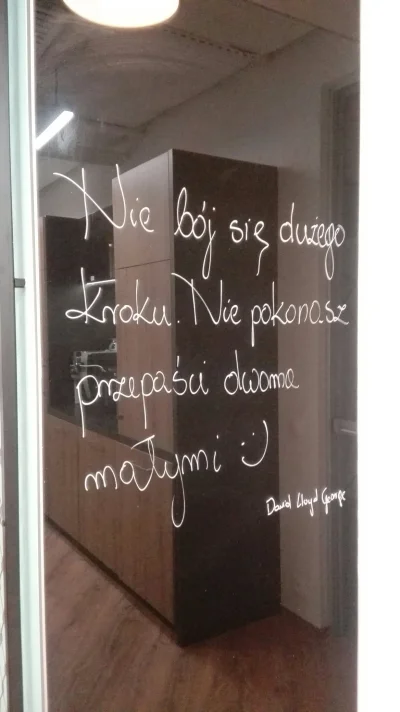 Nie bój się dużego
kroku. Nie pokonasz
przepaści dwoma
małymi :)
David Lloyd George